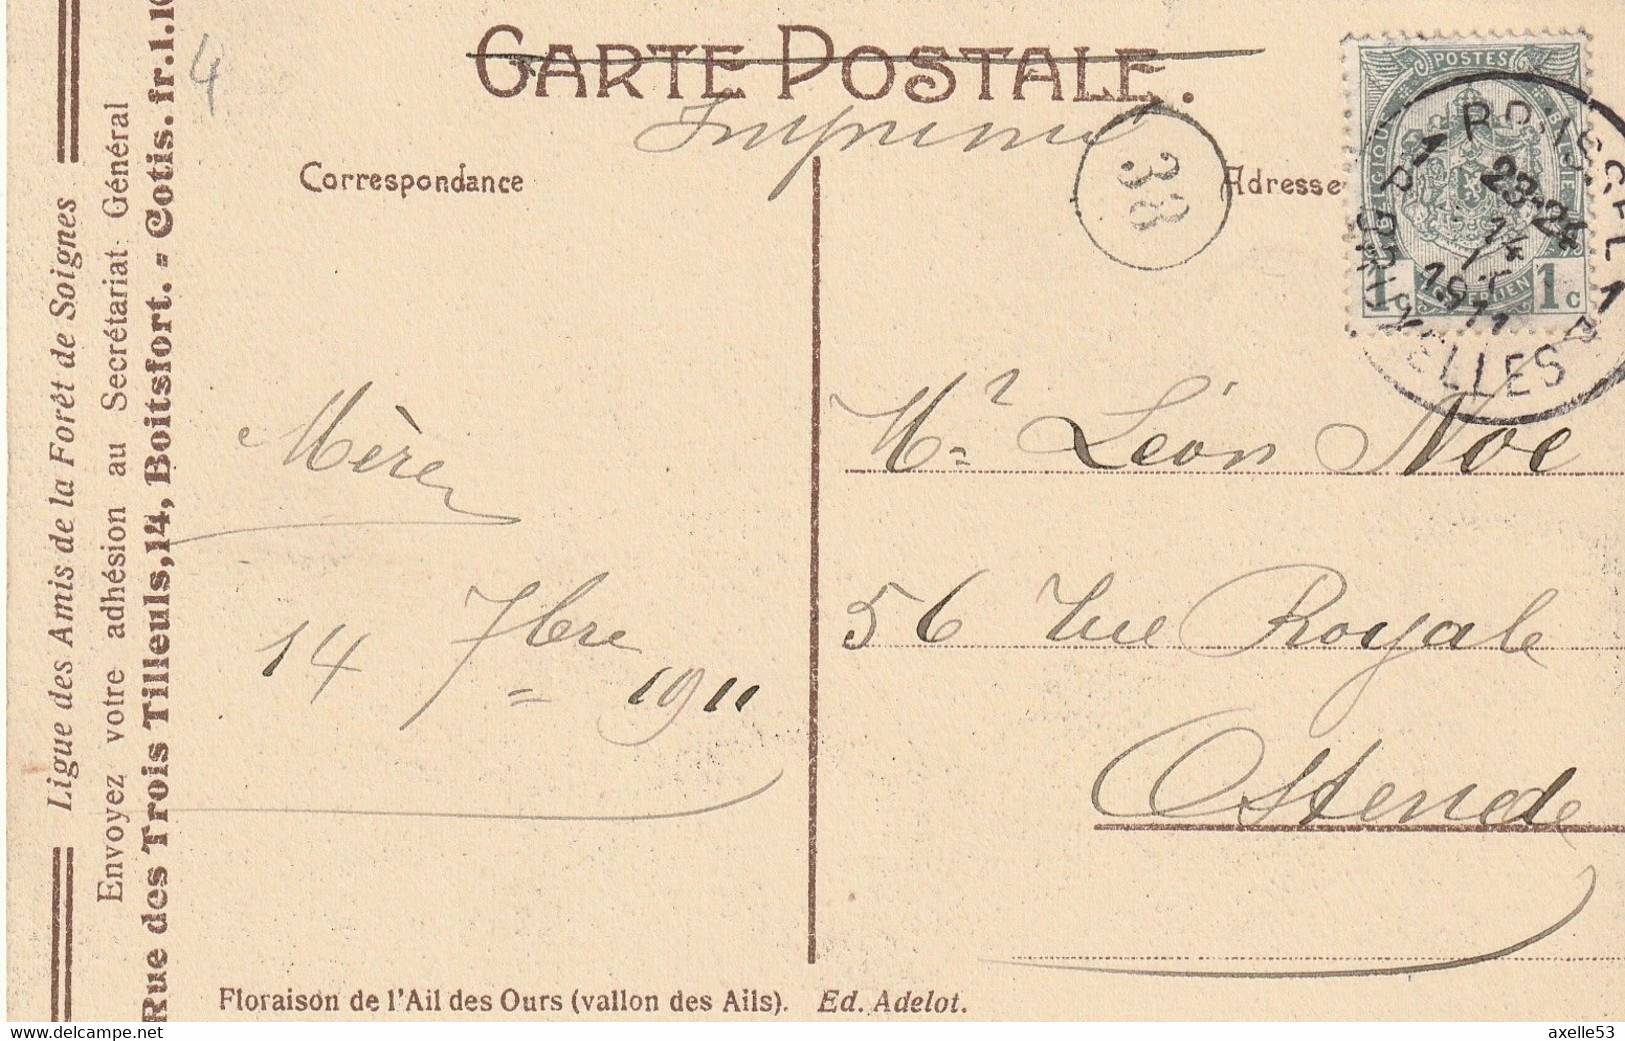 CARTE POSTALE.
Imprimé
Correspondance
Adresse
38
4
POSTES
1 1c
23-24
1911
BRUXELLES
Mère
14 7bre 1911
Mr Léon Noë
56 rue Royale
Ostende
Ligue des Amis de la Forêt de Soignes
Envoyez votre adhésion au Secrétariat Général
Rue des Trois Tilleuls, 14, Boitsfort. - Cotis. fr. 1.10
Floraison de l'Ail des Ours (vallon des Ails). Ed. Adelot.
delcampe.net
axelle53